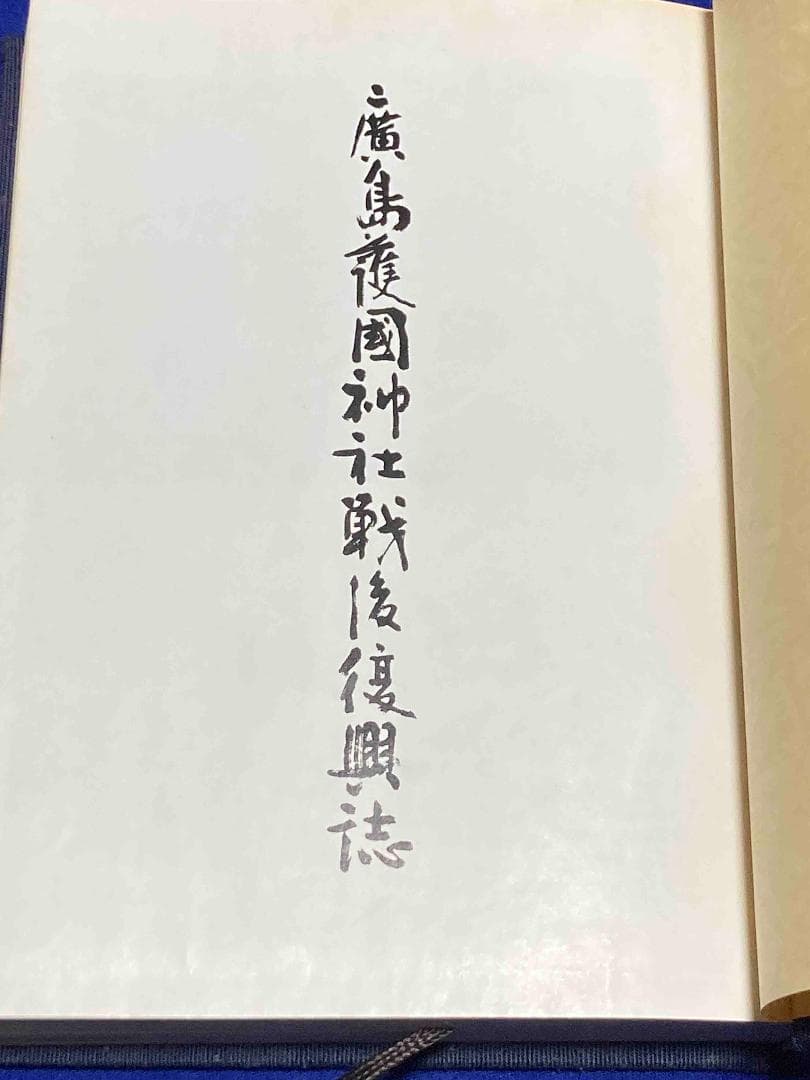 廣島護國神社戦後復興誌